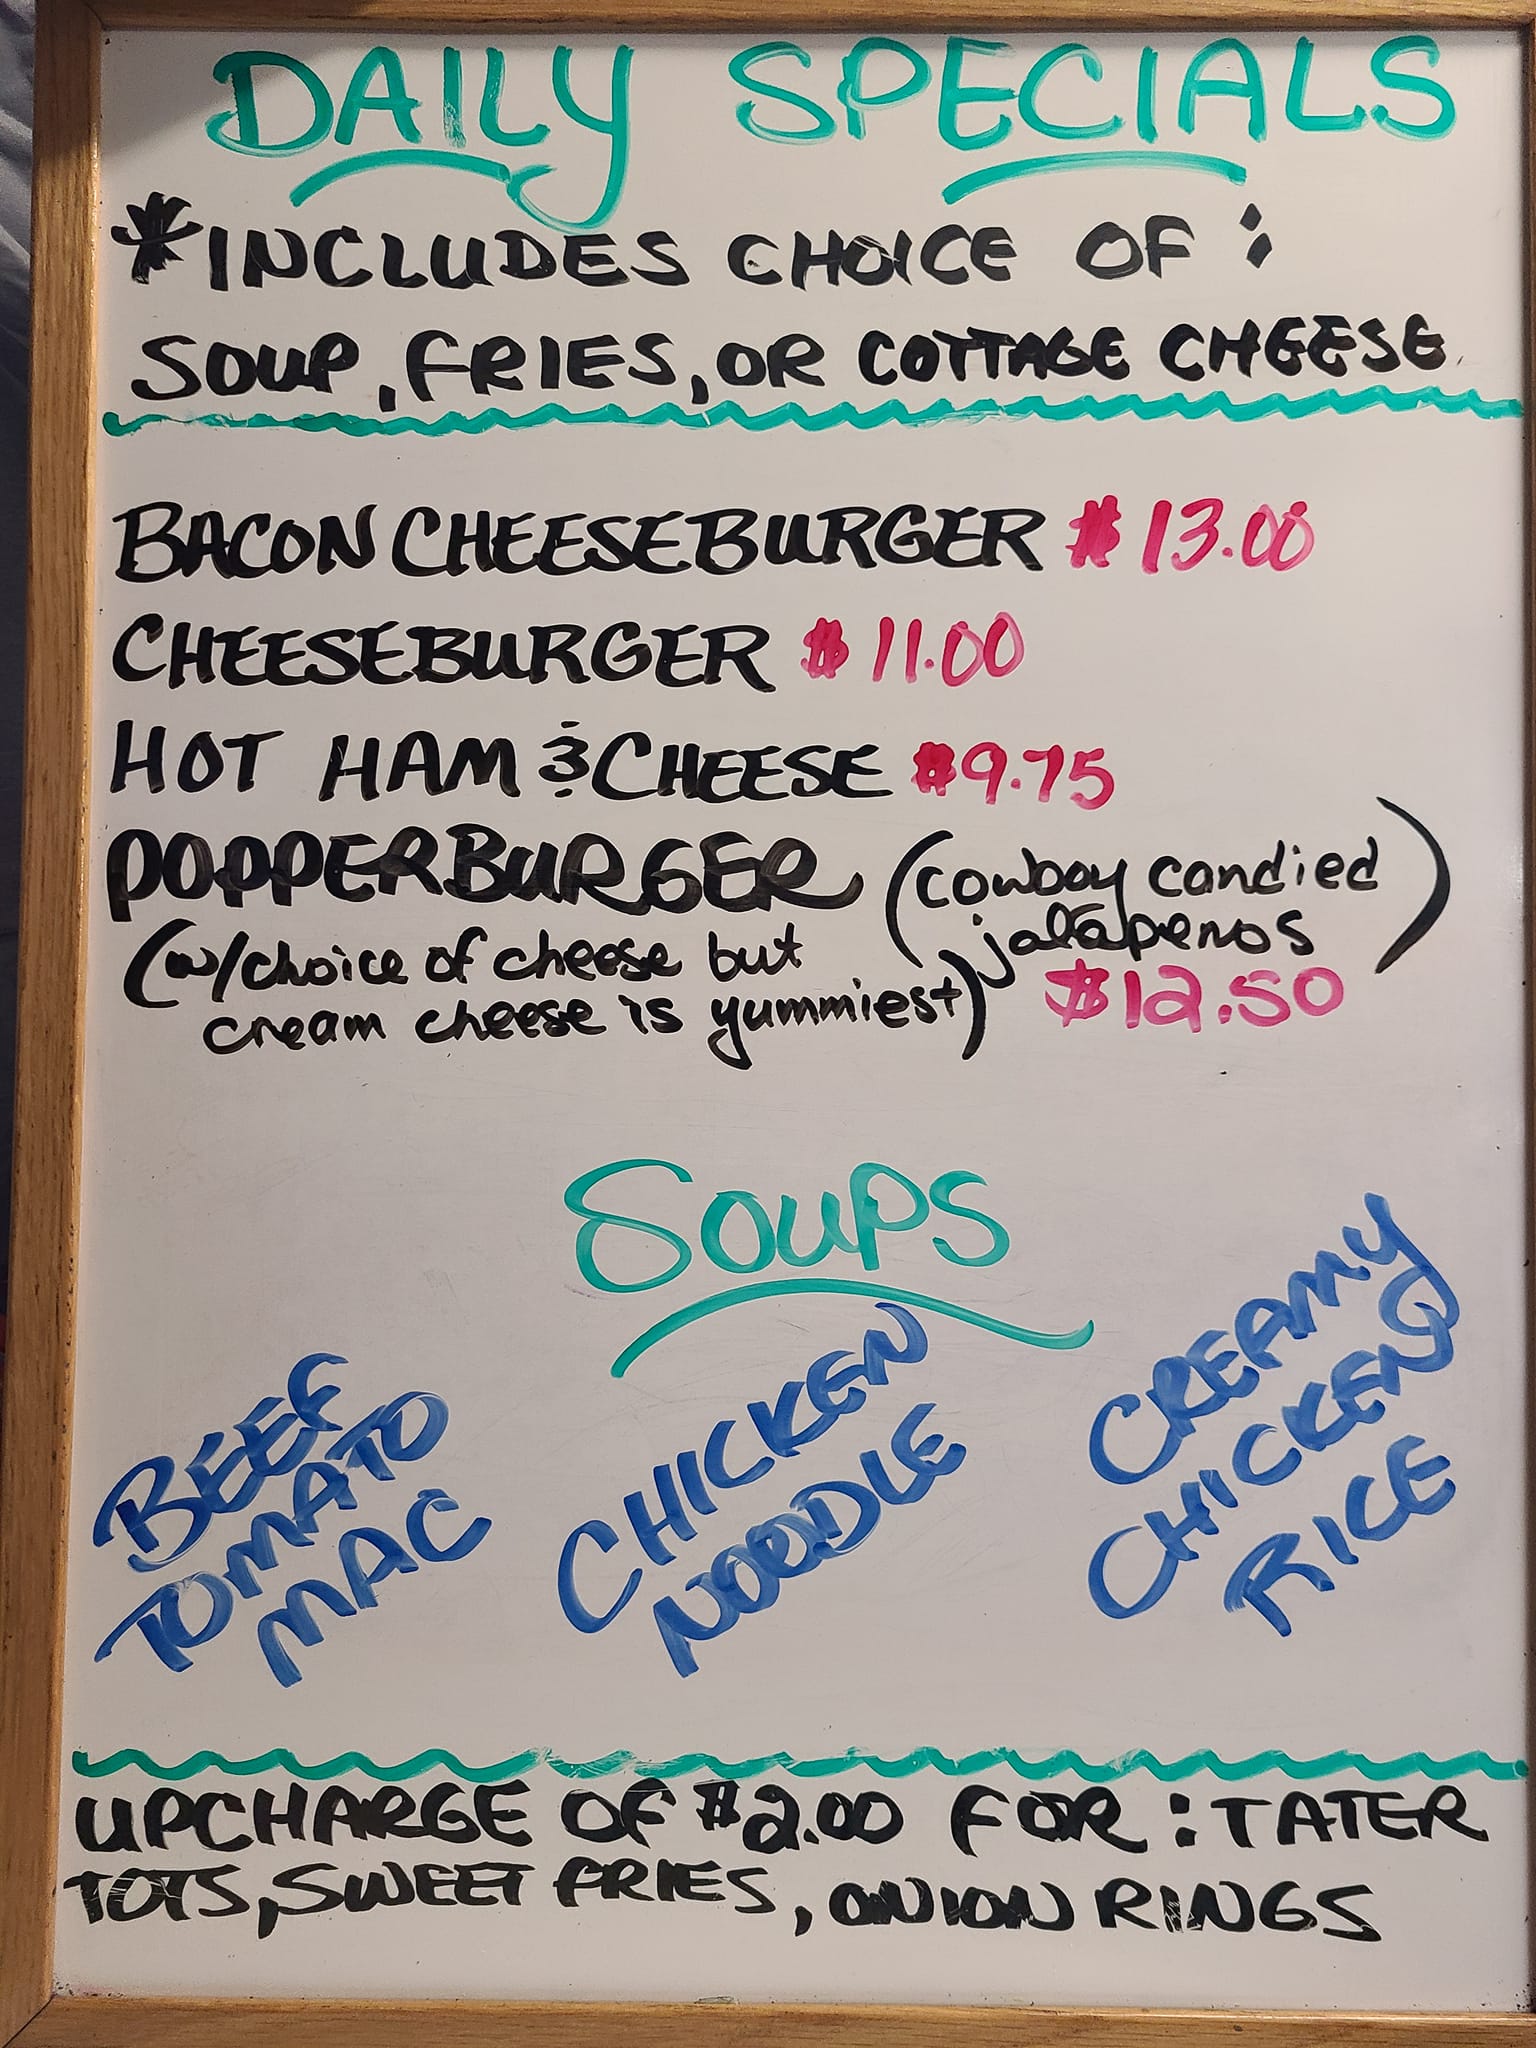 DAILY SPECIALS
*INCLUDES CHOICE OF:
SOUP, FRIES, OR COTTAGE CHEESE
BACON CHEESEBURGER $13.00
CHEESEBURGER $11.00
HOT HAM & CHEESE $9.75
POPPERBURGER (cowboy candied
jalapenos)
(w/choice of cheese but
cream cheese is yummiest) $12.50
SOUPS
BEEF
TOMATO
MAC
CHICKEN
NOODLE
CREAMY
CHICKEN
RICE
UPCHARGE OF $2.00 FOR: TATER
TOTS, SWEET FRIES, ONION RINGS